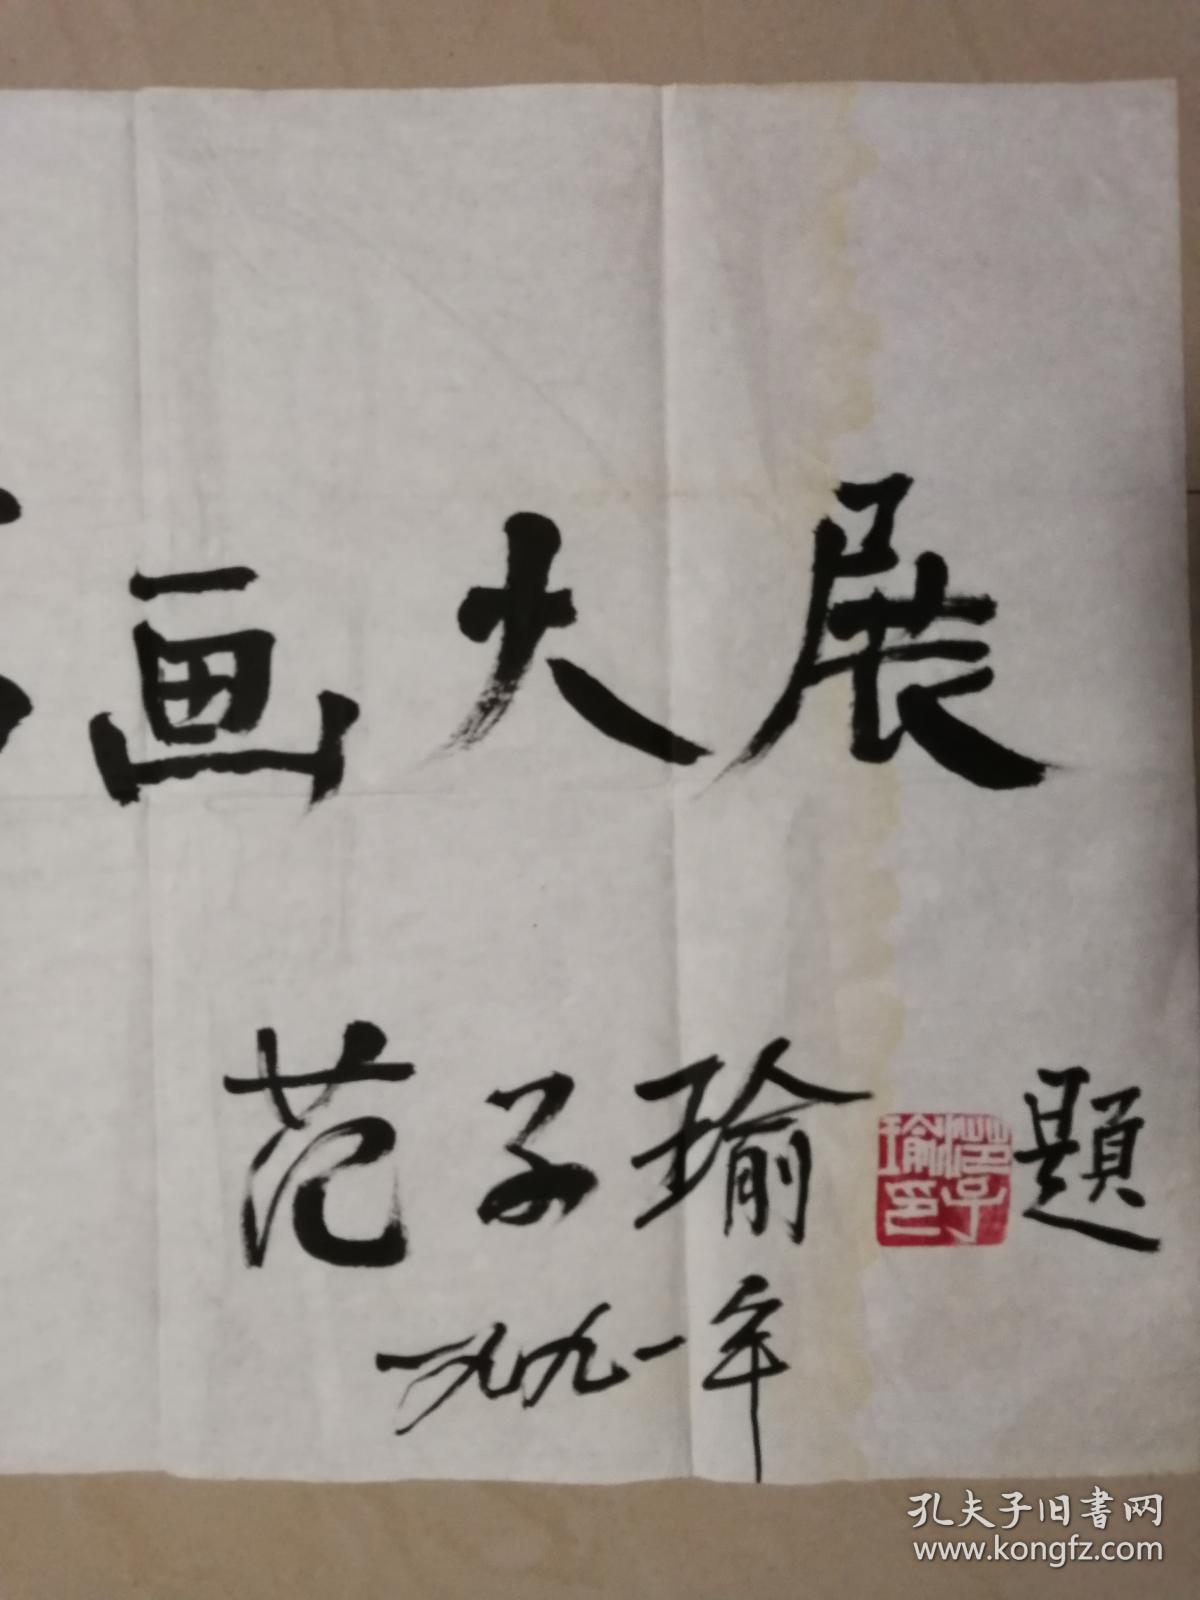 画大展
范子瑜題
范子瑜印
一九九一年
孔夫子旧書网
www.kongfz.com